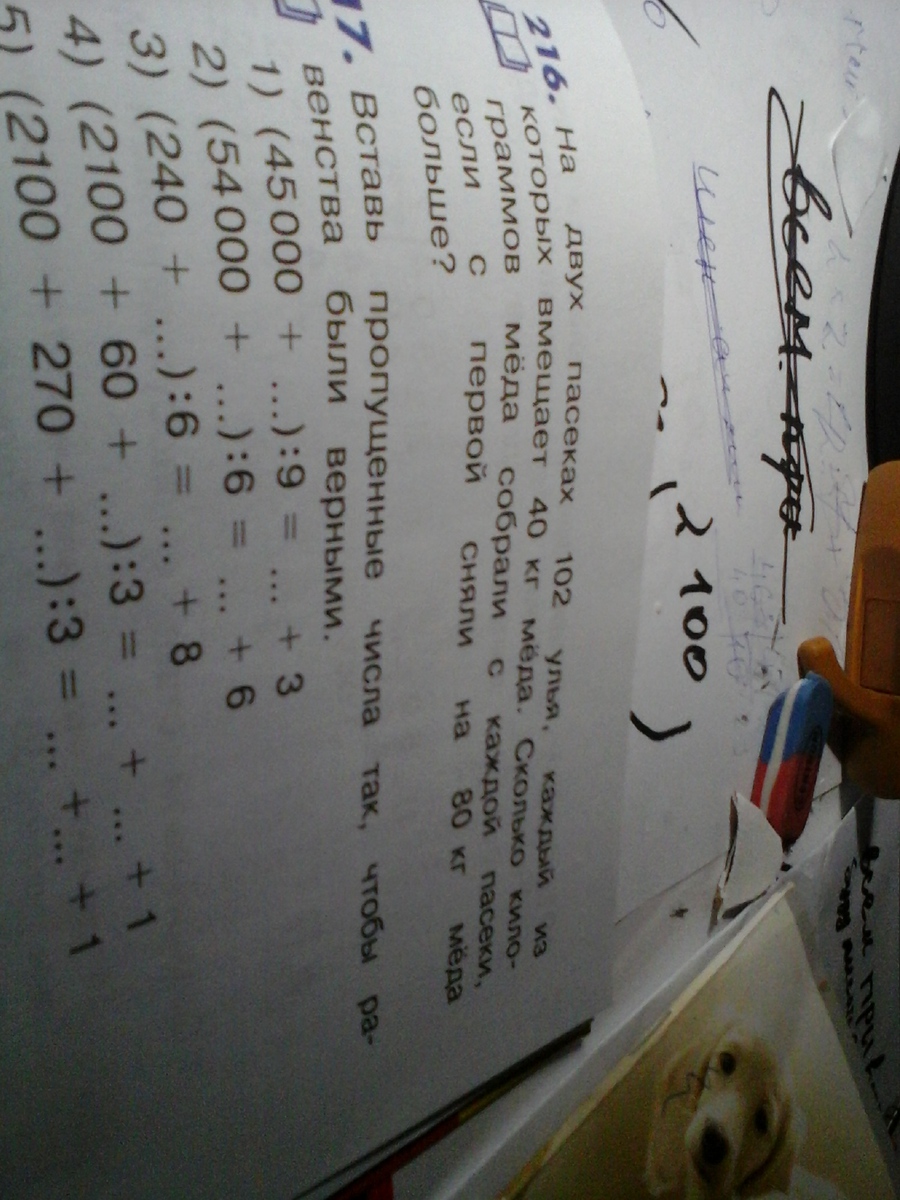 всем при
2 100 )
всем при
216. На двух пасеках 102 улья, каждый из
которых вмещает 40 кг мёда. Сколько кило-
граммов мёда собрали с каждой пасеки,
если с первой сняли на 80 кг мёда
больше?
17. Вставь пропущенные числа так, чтобы ра-
венства были верными.
1) (45000 + ...):9 = ... + 3
2) (54000 + ...):6 = ... + 6
3) (240 + ...):6 = ... + 8
4) (2100 + 60 + ...):3 = ... + ... + 1
5) (2100 + 270 + ...):3 = ... + ... + 1